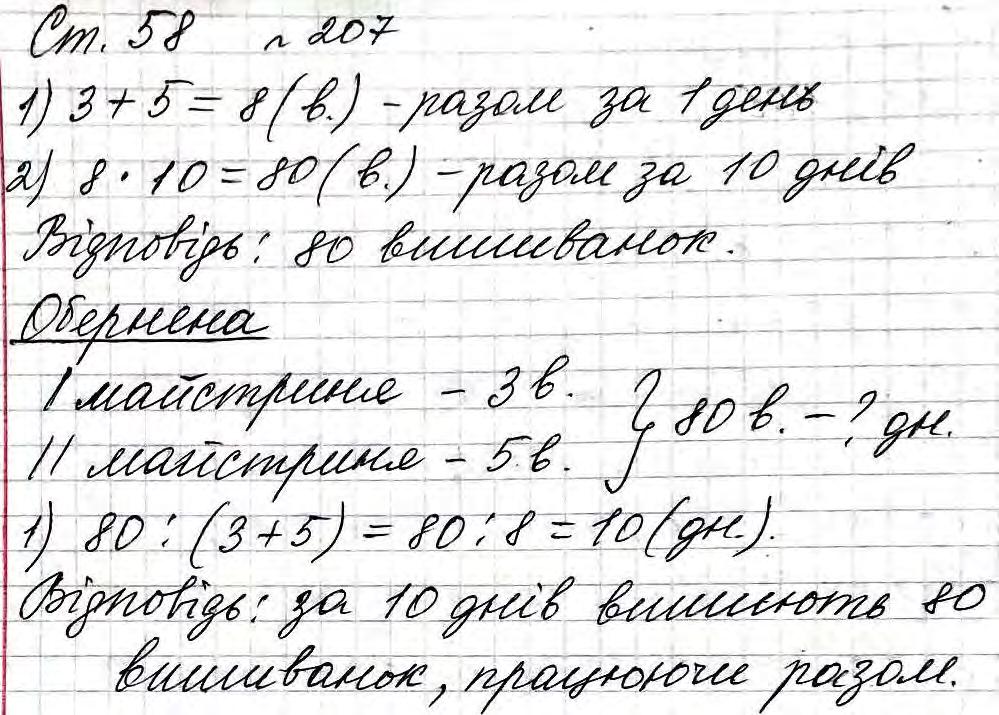 Ст. 58 № 207
1) 3 + 5 = 8 (в.) – разом за 1 день
2) 8 · 10 = 80 (в.) – разом за 10 днів
Відповідь: 80 вишиванок.
Обернена
І майстриня – 3 в. } 80 в. – ? дн.
ІІ майстриня – 5 в.
1) 80 : (3 + 5) = 80 : 8 = 10 (дн.).
Відповідь: за 10 днів вишиють 80
вишиванок, працюючи разом.